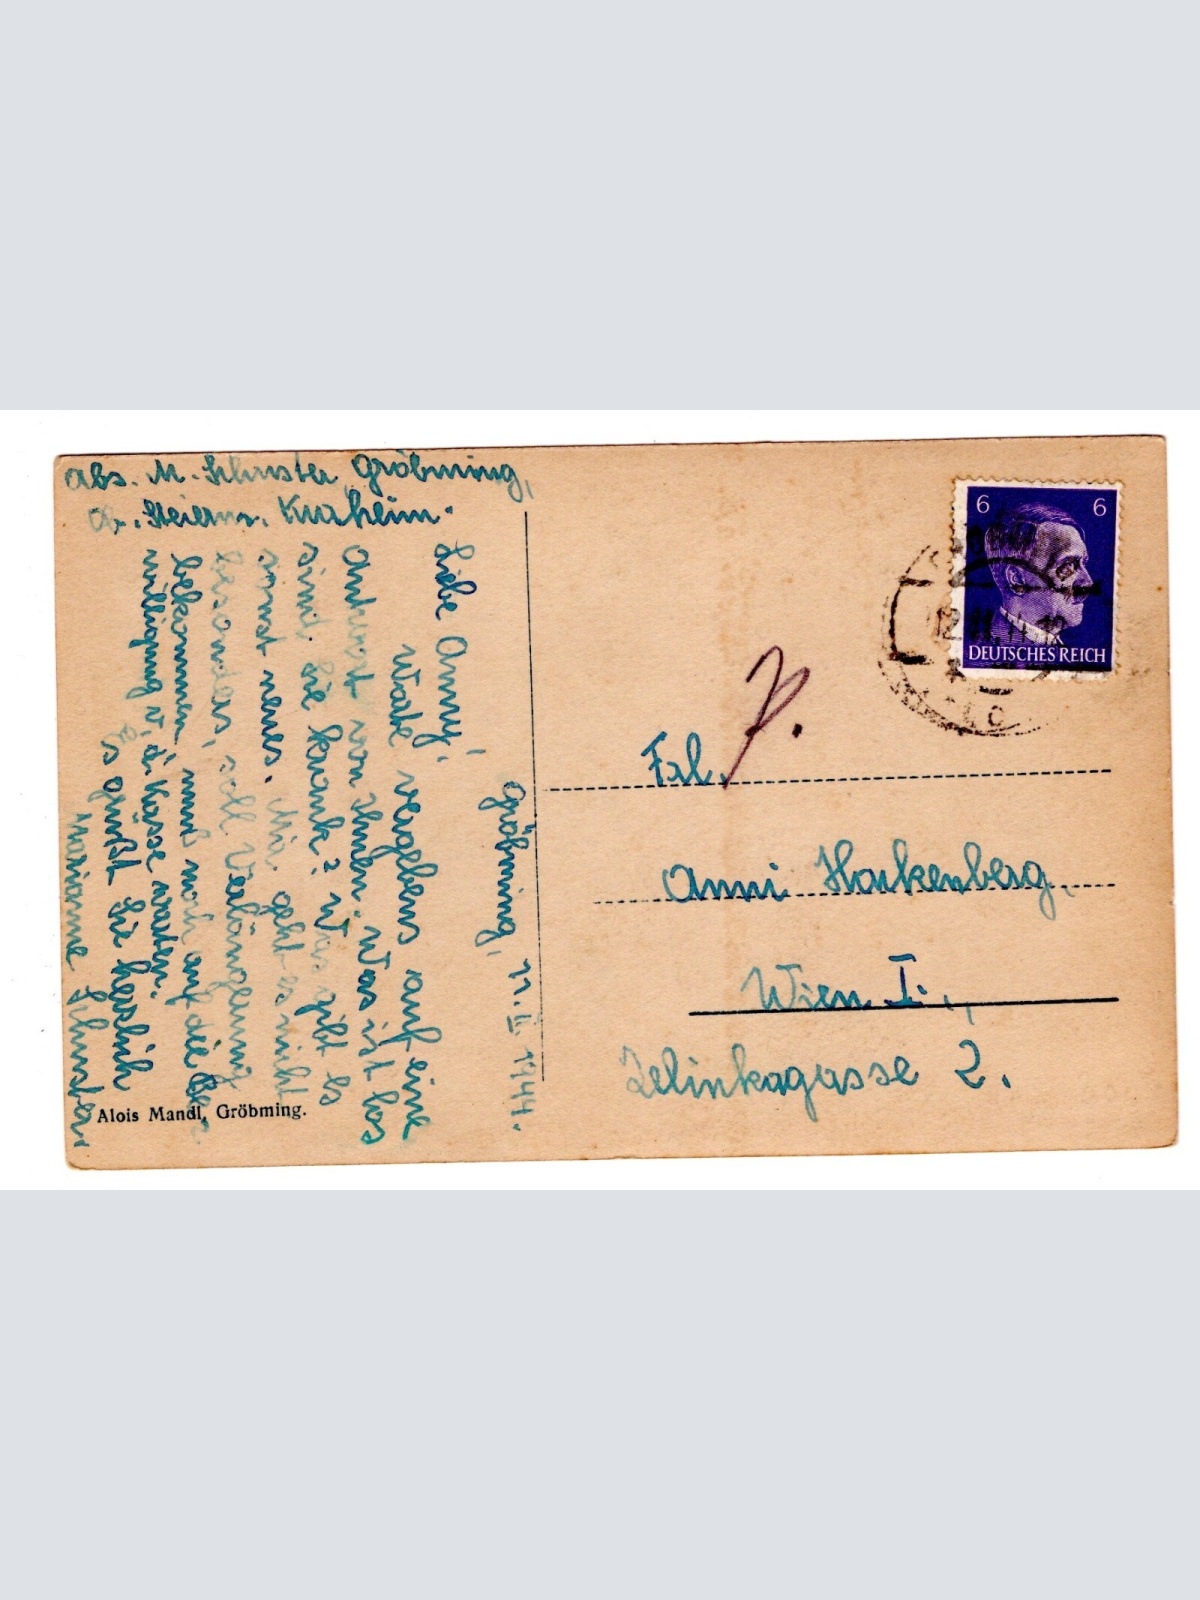 Abs. M. Schuster, Gröbming,
Ob. Steierm. Kurheim.
Gröbming, 11. II. 1944.
Liebe Anny,
Warte vergebens auf eine
Antwort von Ihnen. Was ist los
sind Sie krank? Was gibt es
sonst neues. Mir geht es nicht
besonders, soll Verlängerung
bekommen, muß noch auf die Be-
willigung v. d. Kasse warten.
Es grüßt Sie herzlich
Marianne Schuster
Alois Mandl, Gröbming.
6 6
DEUTSCHES REICH
Frl.
Anni Hackenberg,
Wien I.,
Zelinkagasse 2.